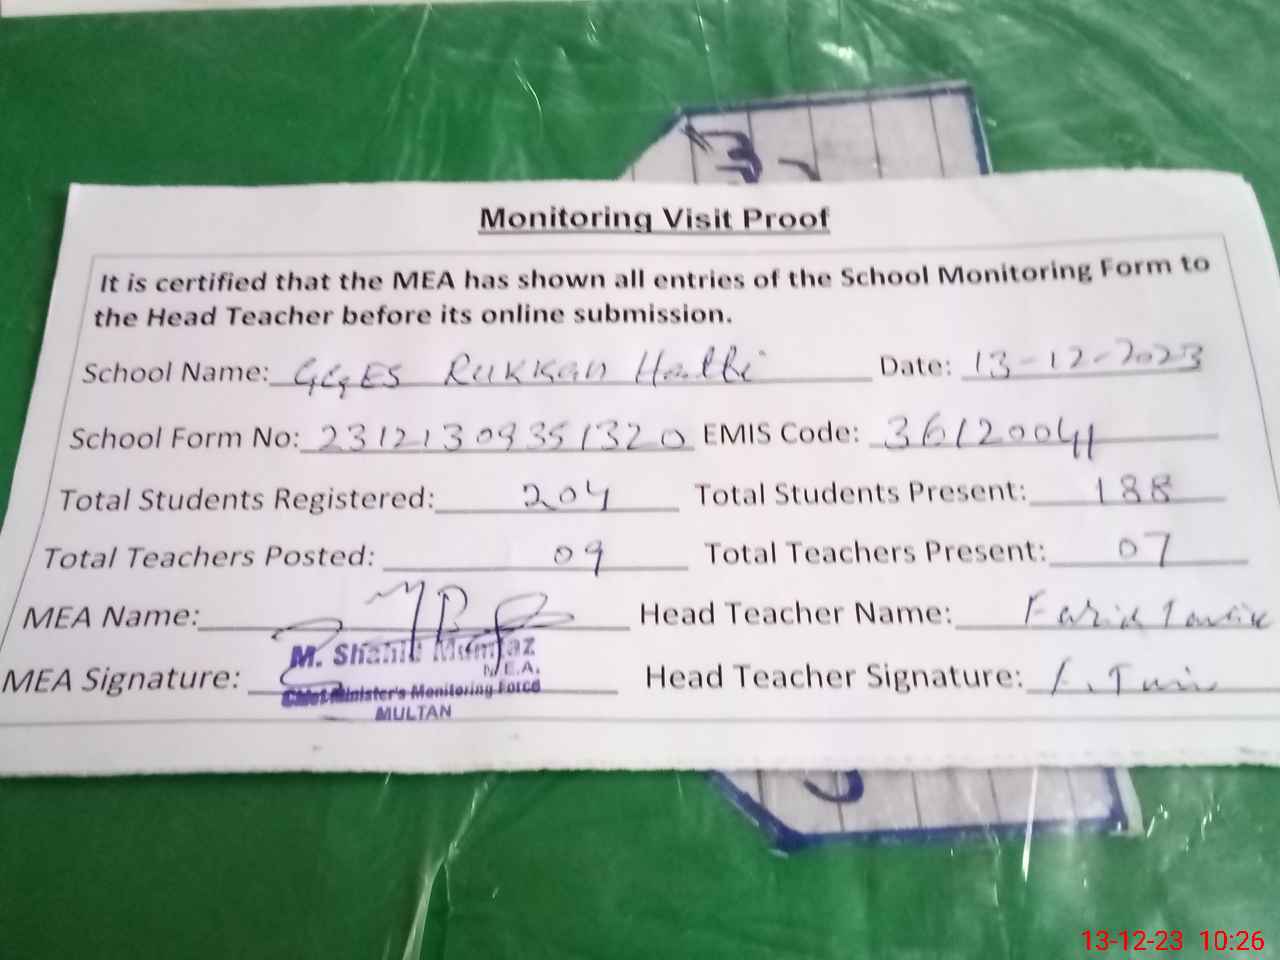 3
Monitoring Visit Proof
It is certified that the MEA has shown all entries of the School Monitoring Form to
the Head Teacher before its online submission.
School Name: GGES Rukkan Hatti Date: 13-12-2023
School Form No: 23121309351320 EMIS Code: 36120041
Total Students Registered: 204 Total Students Present: 188
Total Teachers Posted: 09 Total Teachers Present: 07
MEA Name: Head Teacher Name: Farida
M. Shahid Mumtaz
M.E.A.
MEA Signature: Head Teacher Signature:
Chief Minister's Monitoring Force
MULTAN
13-12-23 10:26